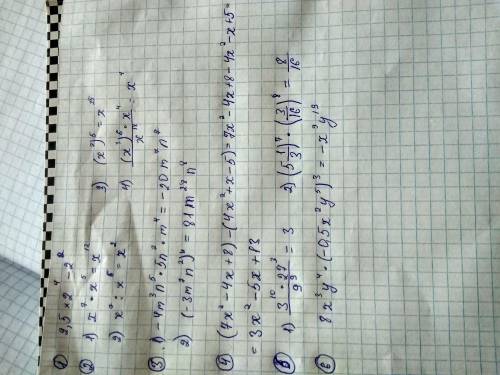 ①
② 1) x⁷ · x⁵ = x¹² 3)
2) x⁷ : x⁵ = x² 4) (x³)⁶ · x⁴ / x¹⁸ = x⁴
③ 1) -4m³n⁵ · 5n² · m⁴ = -20m⁷n⁷
2) (-3m⁷n²)⁴ = 81m²⁸n⁸
④ (7x² - 4x + 8) - (4x² + x - 5) = 7x² - 4x + 8 - 4x² - x + 5 =
= 3x² - 5x + 13
⑤ 1) 3¹⁰ · 27³ / 9⁹ = 3 2) (5 1/3)⁷ · (3/16)⁸ = 8/16
⑥ 8x³y⁴ · (-0,5x²y⁵)³ = -x⁹y¹⁹